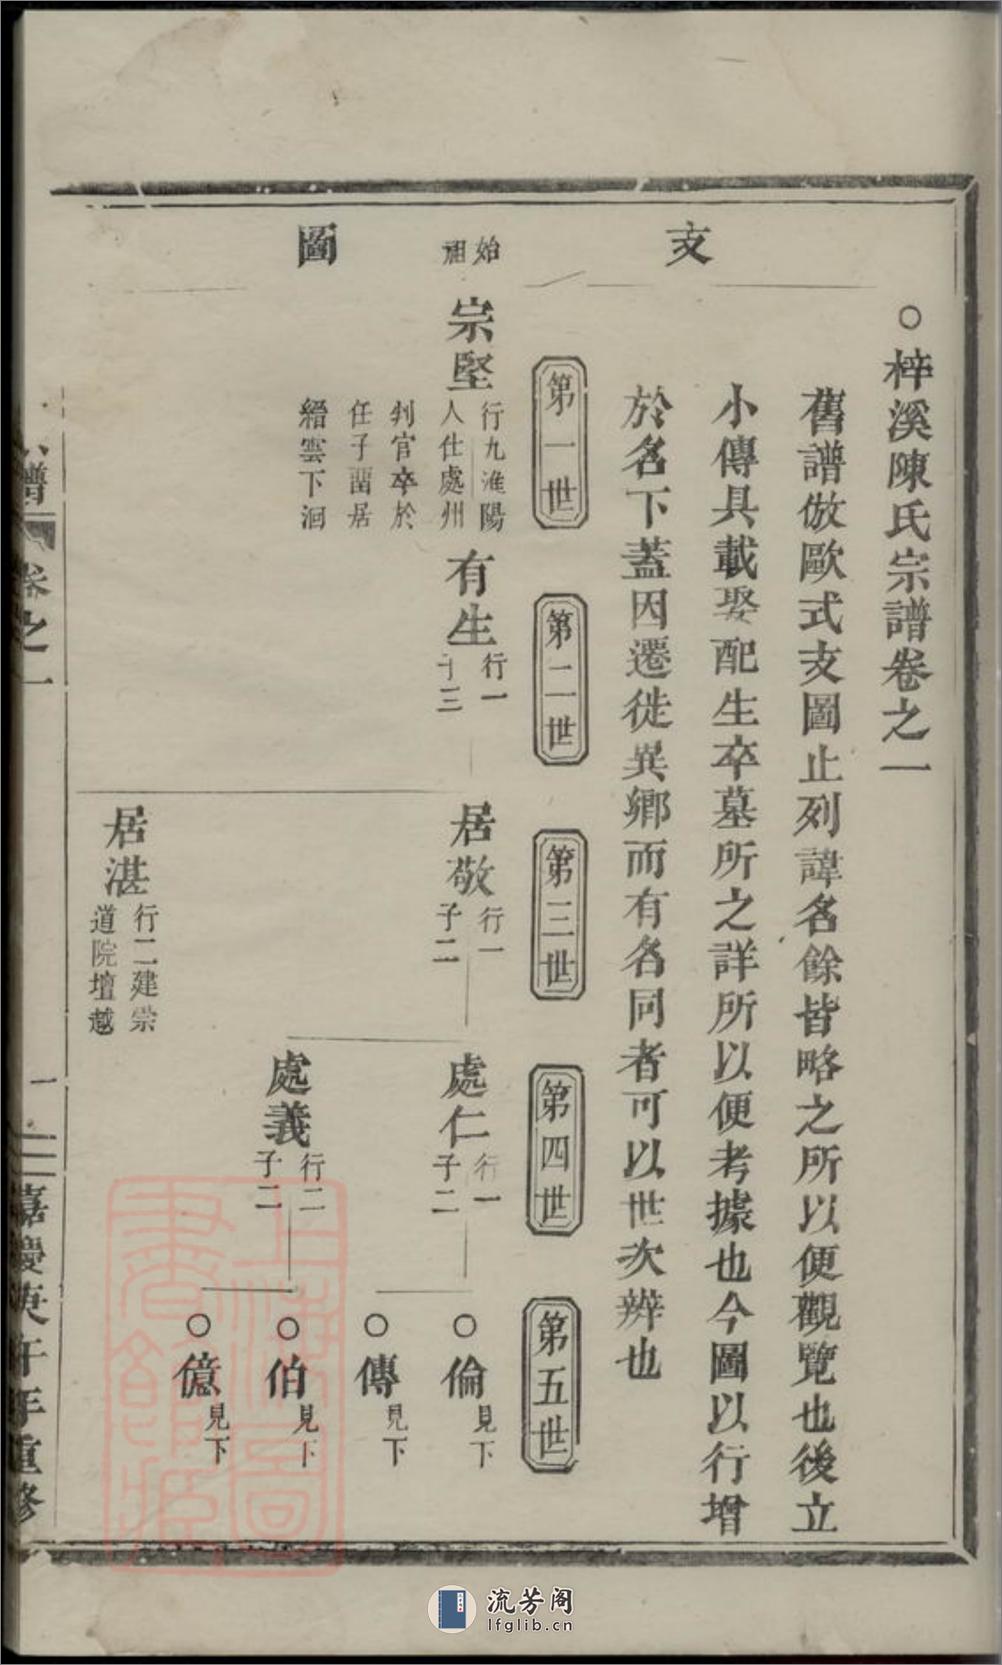 ○梓溪陳氏宗譜卷之一
支
圖
舊譜倣歐式支圖止列諱名餘皆略之所以便觀覽也後立
小傳具載娶配生卒墓所之詳所以便考據也今圖以行增
於名下蓋因遷徙異鄉而有名同者可以世次辨也
第一世
第二世
第三世
第四世
第五世
始祖
宗堅
行九淮陽
人仕處州
判官卒於
任子畱居
縉雲下洄
有生
行一
子三
居敬
行一
子二
居湛
行二建崇
道院壇越
處仁
行一
子二
處義
行二
子二
○倫見下
○傳見下
○伯見下
○億見下
譜
卷之一
一
嘉慶庚午年重修
上海圖書館藏
流芳阁
lfglib.cn